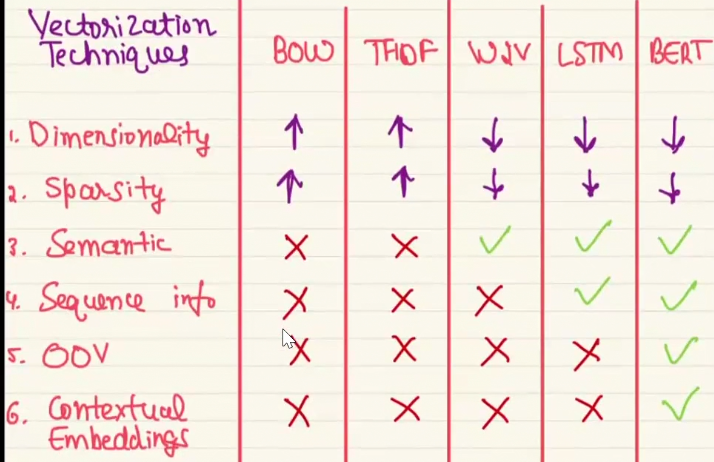 Vectorization
Techniques
BOW TFIDF W2V LSTM BERT
1. Dimensionality ↑ ↑ ↓ ↓ ↓
2. Sparsity ↑ ↑ ↓ ↓ ↓
3. Semantic ✗ ✗ ✓ ✓ ✓
4. Sequence info ✗ ✗ ✗ ✓ ✓
5. OOV ✗ ✗ ✗ ✗ ✓
6. Contextual
Embeddings ✗ ✗ ✗ ✗ ✓